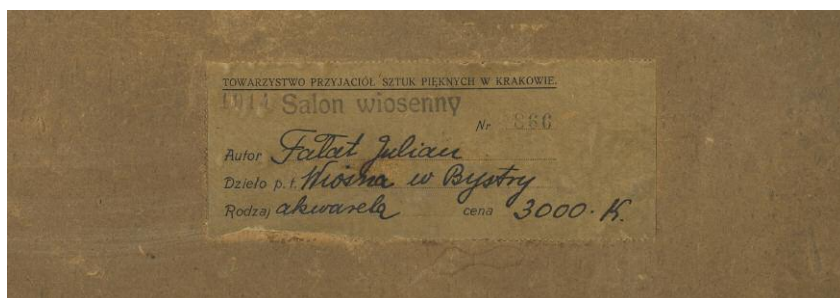 TOWARZYSTWO PRZYJACIÓŁ SZTUK PIĘKNYCH W KRAKOWIE.
1914 Salon wiosenny
Nr 866
Autor Fałat Julian
Dzieło p. t. Wiosna w Bystry
Rodzaj akwarela cena 3000. K.